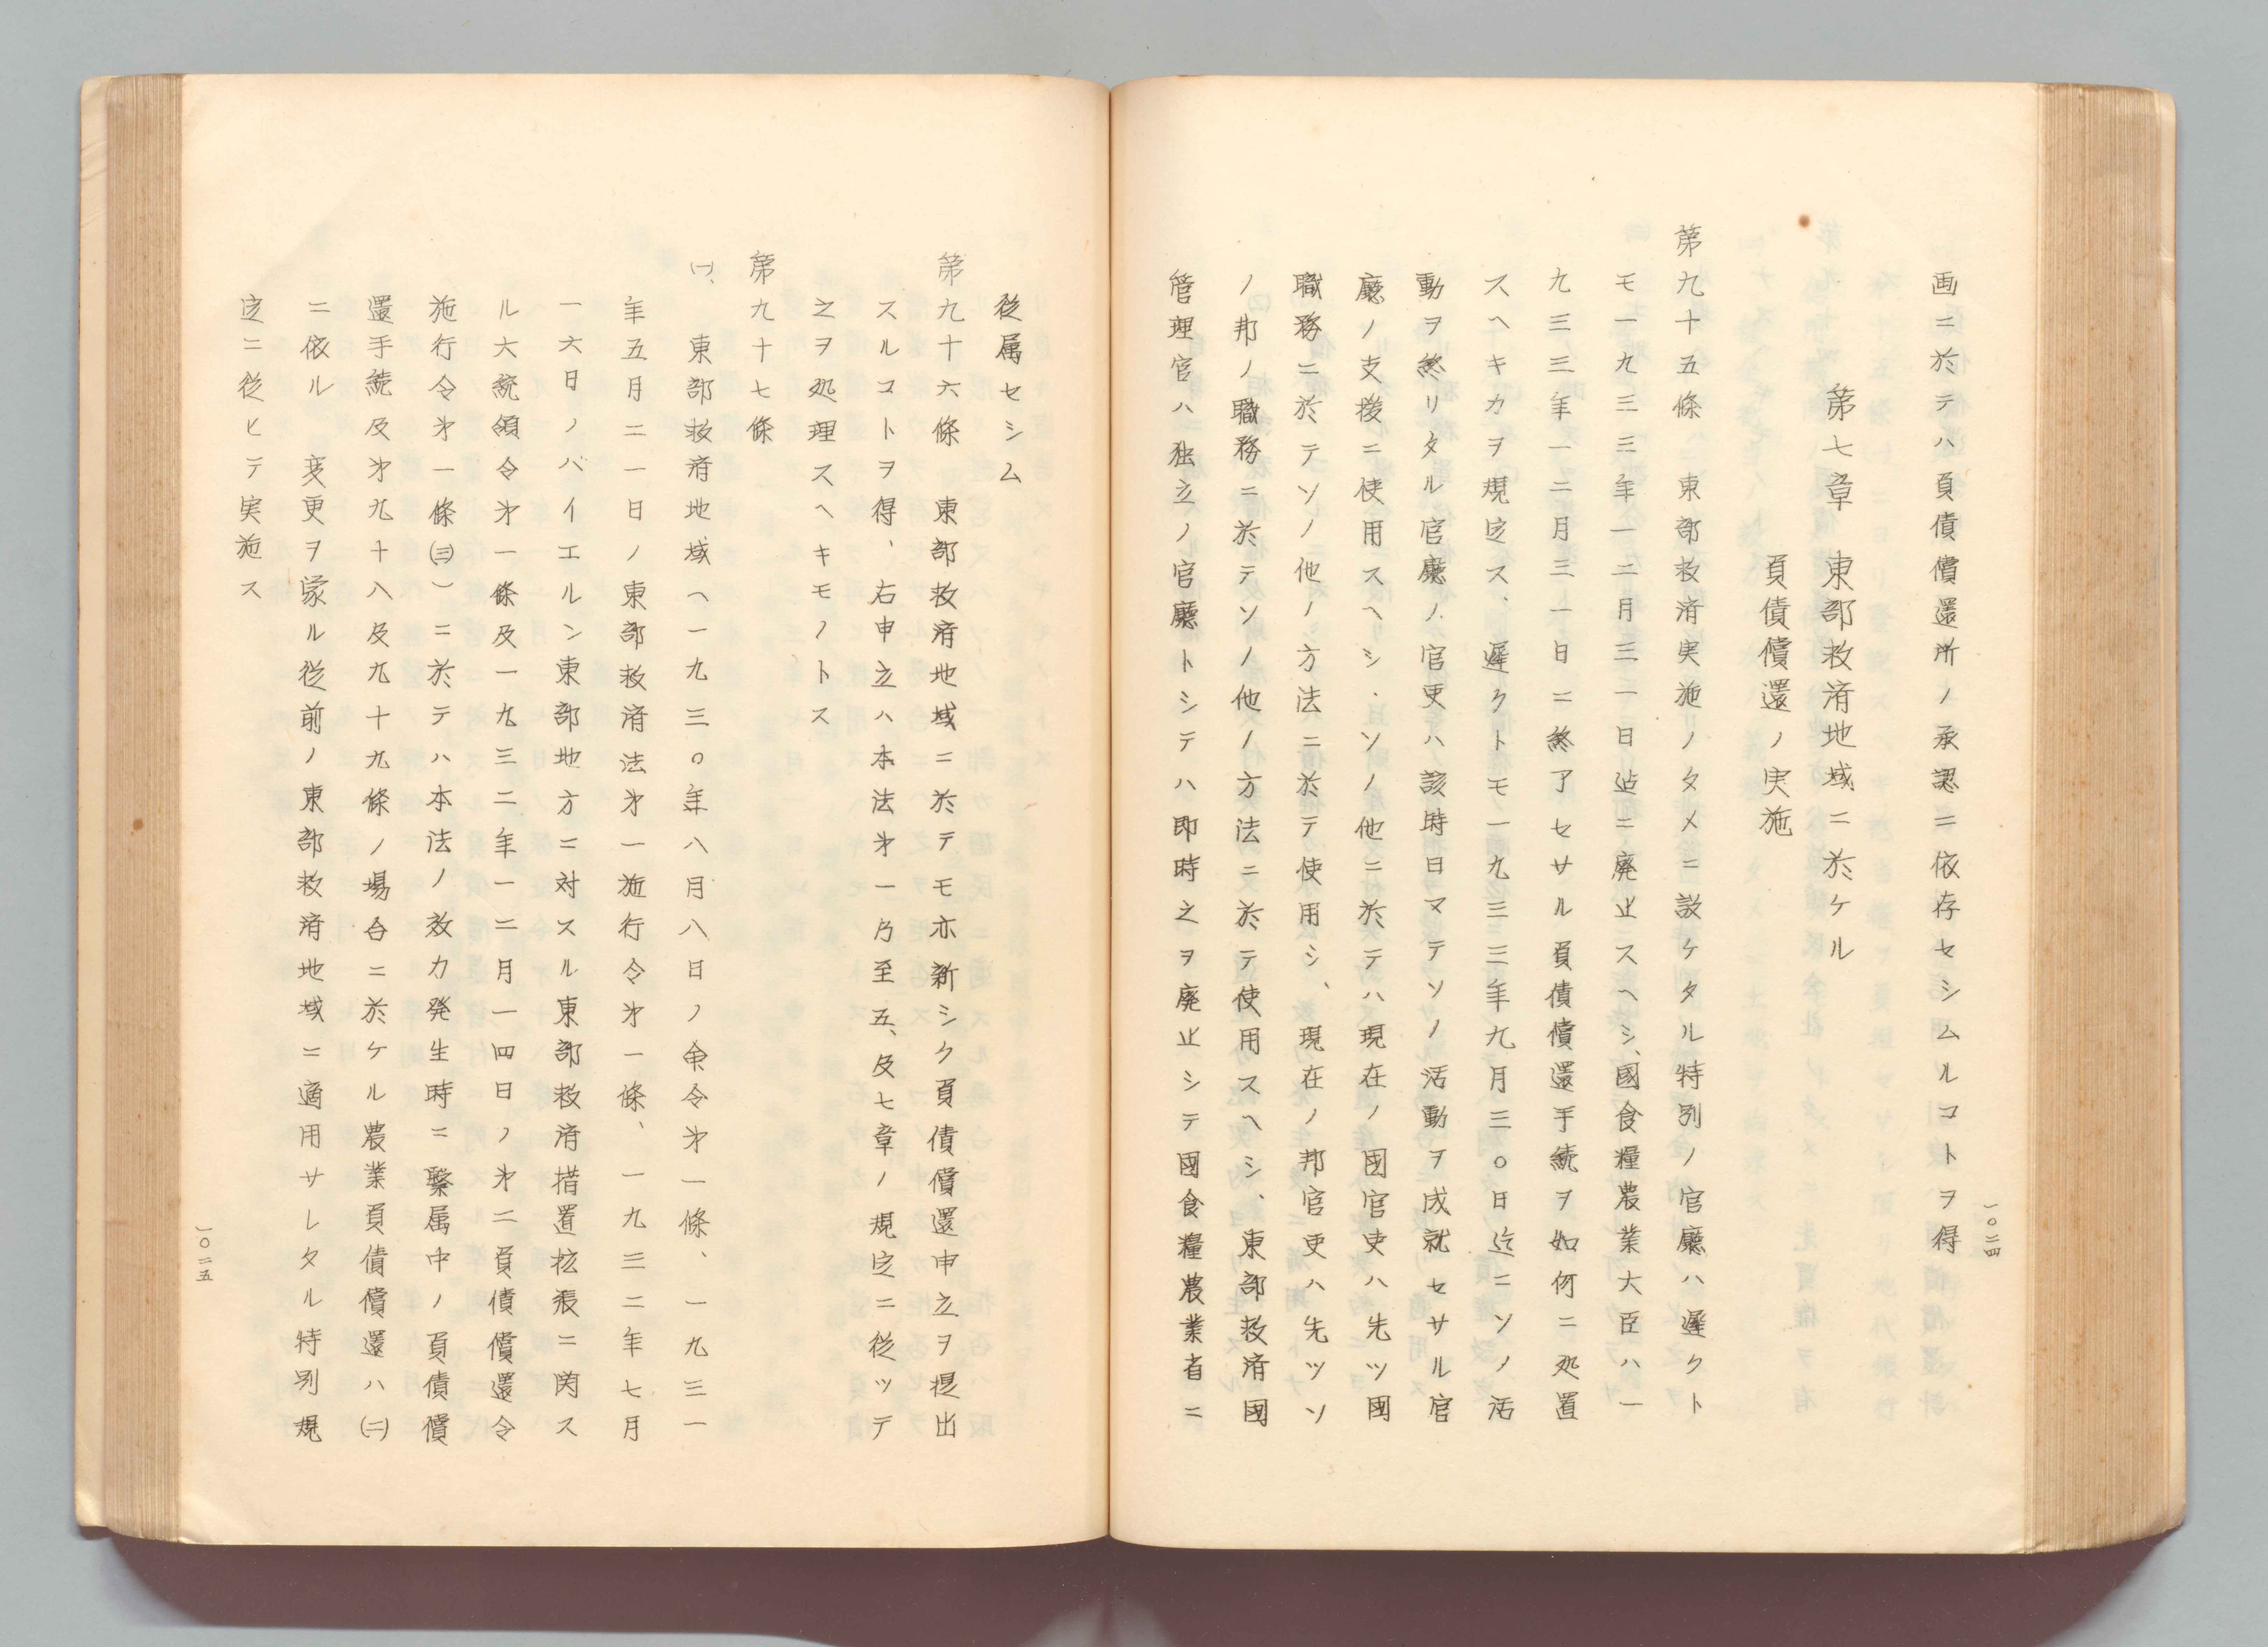 一〇二四
画ニ於テハ負債償還所ノ承認ニ依存セシムルコトヲ得
第七章 東部救済地域ニ於ケル
負債償還ノ実施
第九十五條 東部救済実施ノタメニ設ケタル特別ノ官廳ハ遅クト
モ一九三三年一二月三一日迠ニ廃止スヘシ、國食糧農業大臣ハ一
九三三年一二月三一日ニ終了セサル負債償還手続ヲ如何ニ処置
スヘキカヲ規定ス、遅クトモ一九三三年九月三〇日迄ニソノ活
動ヲ終リタル官廳ノ官吏ハ該時日マテソノ活動ヲ成就セサル官
廳ノ支援ニ使用スヘシ、且ソノ他ニ於テハ現在ノ國官吏ハ先ツ國
職務ニ於テソノ他ノ方法ニ於テ使用シ、現在ノ邦官吏ハ先ツソ
ノ邦ノ職務ニ於テソノ他ノ方法ニ於テ使用スヘシ、東部救済國
管理官ハ独立ノ官廳トシテハ即時之ヲ廃止シテ國食糧農業省ニ
從属セシム
第九十六條 東部救済地域ニ於テモ亦新シク負債償還申立ヲ提出
スルコトヲ得、右申立ハ本法才一乃至五、及七章ノ規定ニ従ツテ
之ヲ処理スヘキモノトス
第九十七條
㈠、東部救済地域ヘ一九三〇年八月八日ノ命令才一條、一九三一
年五月二一日ノ東部救済法才一施行令才一條、一九三二年七月
一六日ノバイエルン東部地方ニ対スル東部救済措置拡張ニ関ス
ル大統領令才一條及一九三二年一二月一四日ノ才二負債償還令
施行令才一條㈢）ニ於テハ本法ノ效力発生時ニ繋属中ノ負債償
還手続及才九十八及九十九條ノ場合ニ於ケル農業負債償還ハ㈡
ニ依ル 変更ヲ蒙ル従前ノ東部救済地域ニ適用サレタル特別規
定ニ従ヒテ実施ス
一〇二五